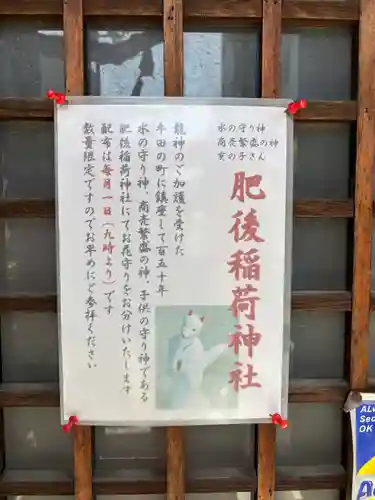 水の守り神
商売繁盛の神
亥の子さん
肥後稲荷神社
龍神のご加護を受けた
牛田の町に鎮座して百五十年
水の守り神、商売繁盛の神、子供の守り神である
肥後稲荷神社にてお花守りをお分けいたします
配布は毎月一日(九時より)です
数量限定ですのでお早めにご参拝ください